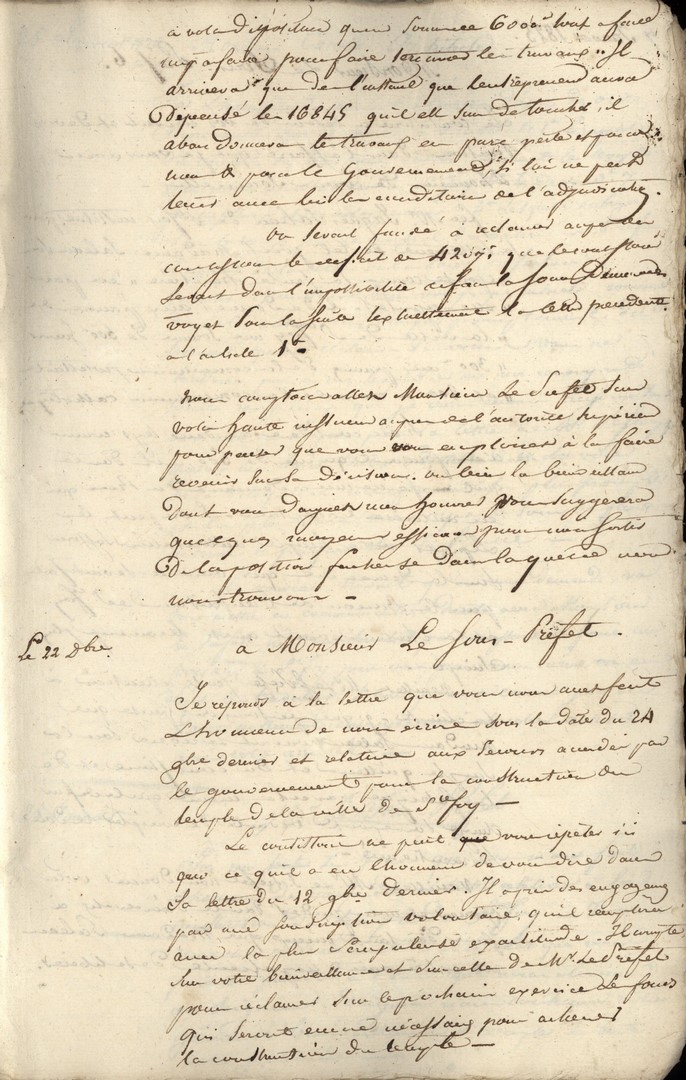 à votre disposition qu'une somme de 6000f tout a fait
pour faire terminer les travaux. Il
arrivera que de l'instant que l'entrepreneur aura
Dépensé les 16845 qu'il est sur de toucher, il
abandonnera les travaux en pure perte et pour
nous et pour le Gouvernement, si lui ne peut
tenir avec lui les conditions de l'adjudication.
On serait fondé à réclamer auprès du
consistoire le deficit de 4209f que le consistoire
serait dans l'impossibilité
voyez pour la suite textuellement la lettre precedente
a l'article 1er
nous comptons assez Monsieur Le Prefet sur
votre haute influence auprès de l'autorité supérieure
pour penser que vous vous emploirez à la faire
revenir sur sa décision. ou bien la bienveillance
dont vous daignez nous honorer vous suggerera
quelques moyens efficaces pour nous sortir
De la position facheuse dans laquelle nous
nous trouvons —
Le 22 Dbre. à Monsieur Le Sous-Préfet.
Je réponds à la lettre que vous nous avez fait
L'honneur de nous écrire sous la date du 24
9bre dernier et relative aux secours accordés par
le gouvernement pour la construction du
temple de la ville de Ste foy —
Le consistoire ne peut que vous répéter ici
que ce qu'il a eu l'honneur de vous dire dans
Sa lettre du 12 9bre dernier. Il a pris des engagements
par une souscription volontaire, qu'il remplira
avec la plus scrupuleuse exactitude. Il compte
sur votre bienveillance et sur celle de Mr. Le Préfet
pour réclamer sur le prochain exercice les fonds
qui seront encore nécessaires pour achever
la construction du temple —